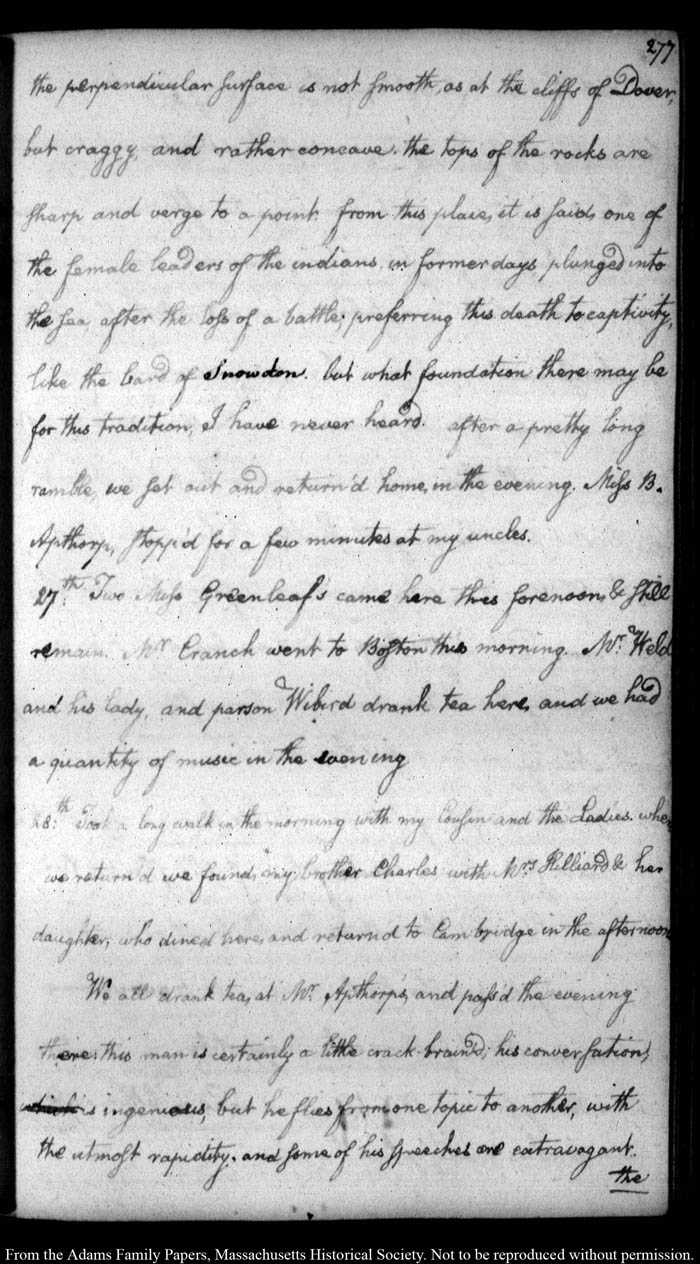 277
the perpendicular surface is not smooth, as at the cliffs of Dover,
but craggy, and rather concave. the tops of the rocks are
sharp and verge to a point. from this place, it is said, one of
the female leaders of the indians, in former days, plunged into
the sea, after the loss of a battle; preferring this death to captivity,
like the bard of Snowdon. but what foundation there may be
for this tradition, I have never heard. after a pretty long
ramble, we set out and return'd home, in the evening. Miss B.
Apthorp, stopp'd for a few minutes at my uncles.
27.th Two Miss Greenleaf's came here this forenoon, & still
remain. Mr Cranch went to Boston this morning. Mr. Weld
and his lady, and parson Wibird drank tea here, and we had
a quantity of music in the evening
28.th Took a long walk in the morning with my Cousin and the Ladies. when
we return'd we found, my brother Charles with Mrs Hilliard & her
daughter, who dined here, and return'd to Cambridge in the afternoon
We all drank tea, at Mr. Apthorp's, and pass'd the evening
there: this man is certainly a little crack-brain'd; his conversation,
which is ingenious, but he flies from one topic to another, with
the utmost rapidity. and some of his speeches are extravagant.
the
From the Adams Family Papers, Massachusetts Historical Society. Not to be reproduced without permission.